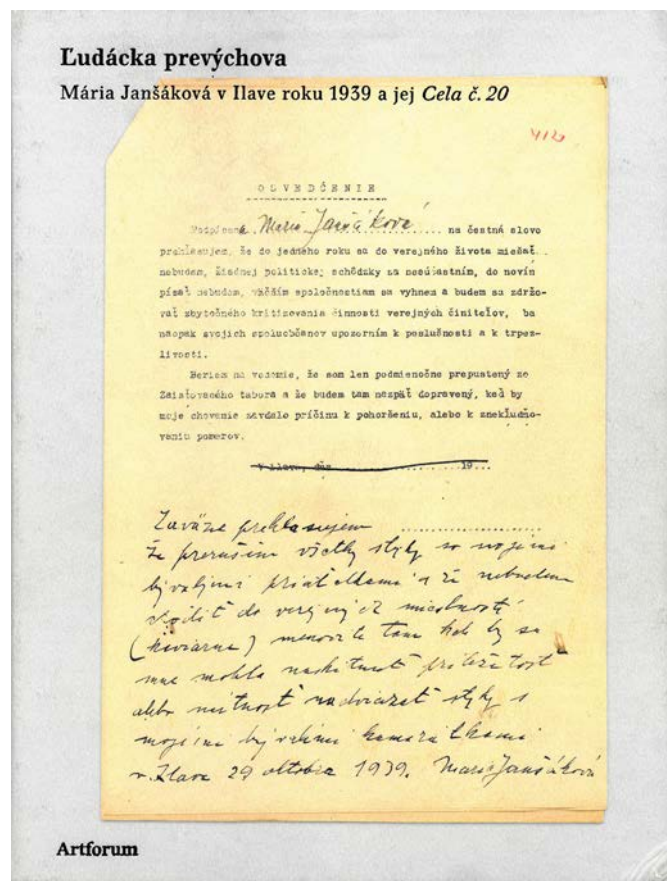 Ľudácka prevýchova
Mária Janšáková v Ilave roku 1939 a jej Cela č. 20
412
OSVEDČENIE
Podpísaná Maria Janšáková na čestné slovo
prehlasujem, že do jedného roku sa do verejného života miešať
nebudem, žiadnej politickej schôdzky sa nesúčastním, do novín
písať nebudem, väčším spoločnostiam sa vyhnem a budem sa zdržo-
vať zbytočného kritizovania činnosti verejných činiteľov, ba
naopak svojich spoluobčanov upozorním k poslušnosti a k trpez-
livosti.
Beriem na vedomie, že som len podmienočne prepustený zo
Zaisťovacého tábora a že budem tam nazpäť dopravený, keď by
moje chovanie zavdalo príčinu k pohoršeniu, alebo k znekľudňo-
vaniu pomerov.
V Ilave, dňa ..........19...
Zaväzne prehlasujem
že preruším všetky styky so svojimi
bývalými priateľkami a že nebudem
chodiť do verejných miestností
(kaviarne) menovite tam kde by sa
mne mohla naskitnúť príležitosť
alebo nútnosť nadviazať styky s
mojimi bývalými kamarátkami
v Ilave 29 októbra 1939. Maria Janšáková
Artforum